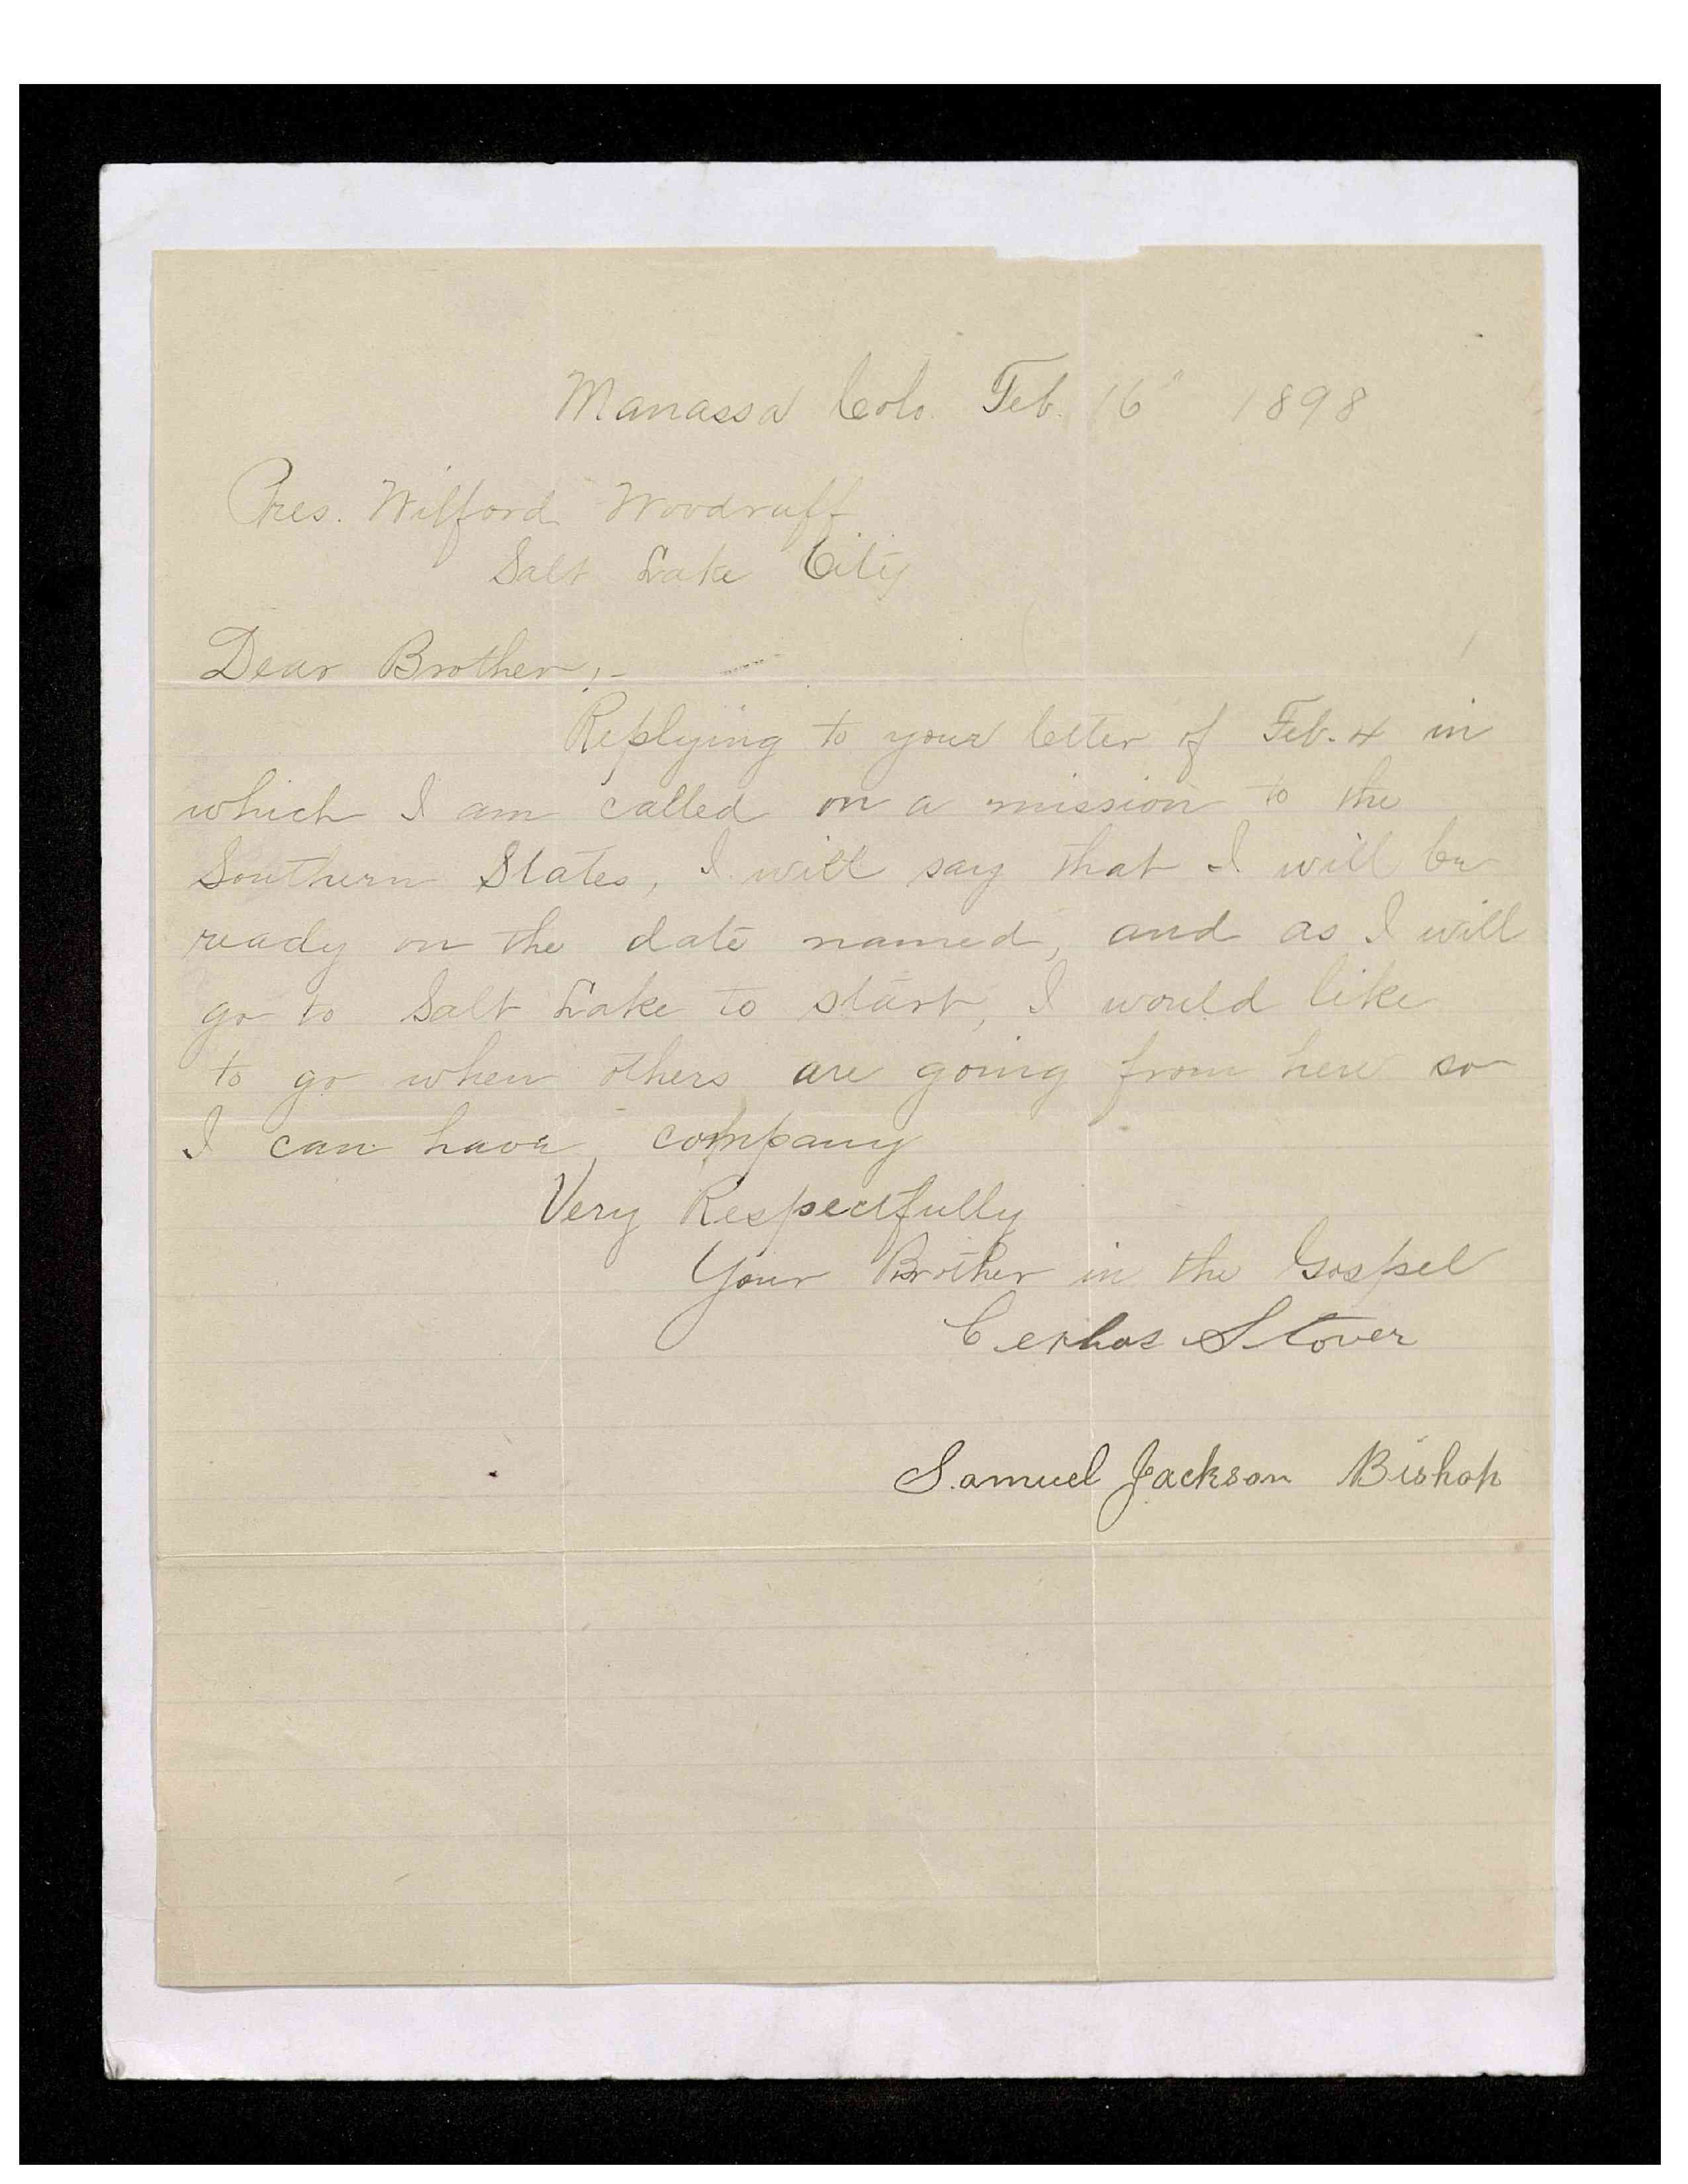 Manassa Colo. Feb. 16" 1898
Pres. Wilford Woodruff
Salt Lake City
Dear Brother,-
Replying to your letter of Feb. 4 in
which I am called on a mission to the
Southern States, I will say that I will be
ready on the date named, and as I will
go to Salt Lake to start, I would like
to go when others are going from here so
I can have company
Very Respectfully
Your Brother in the Gospel
Stover
Samuel Jackson Bishop